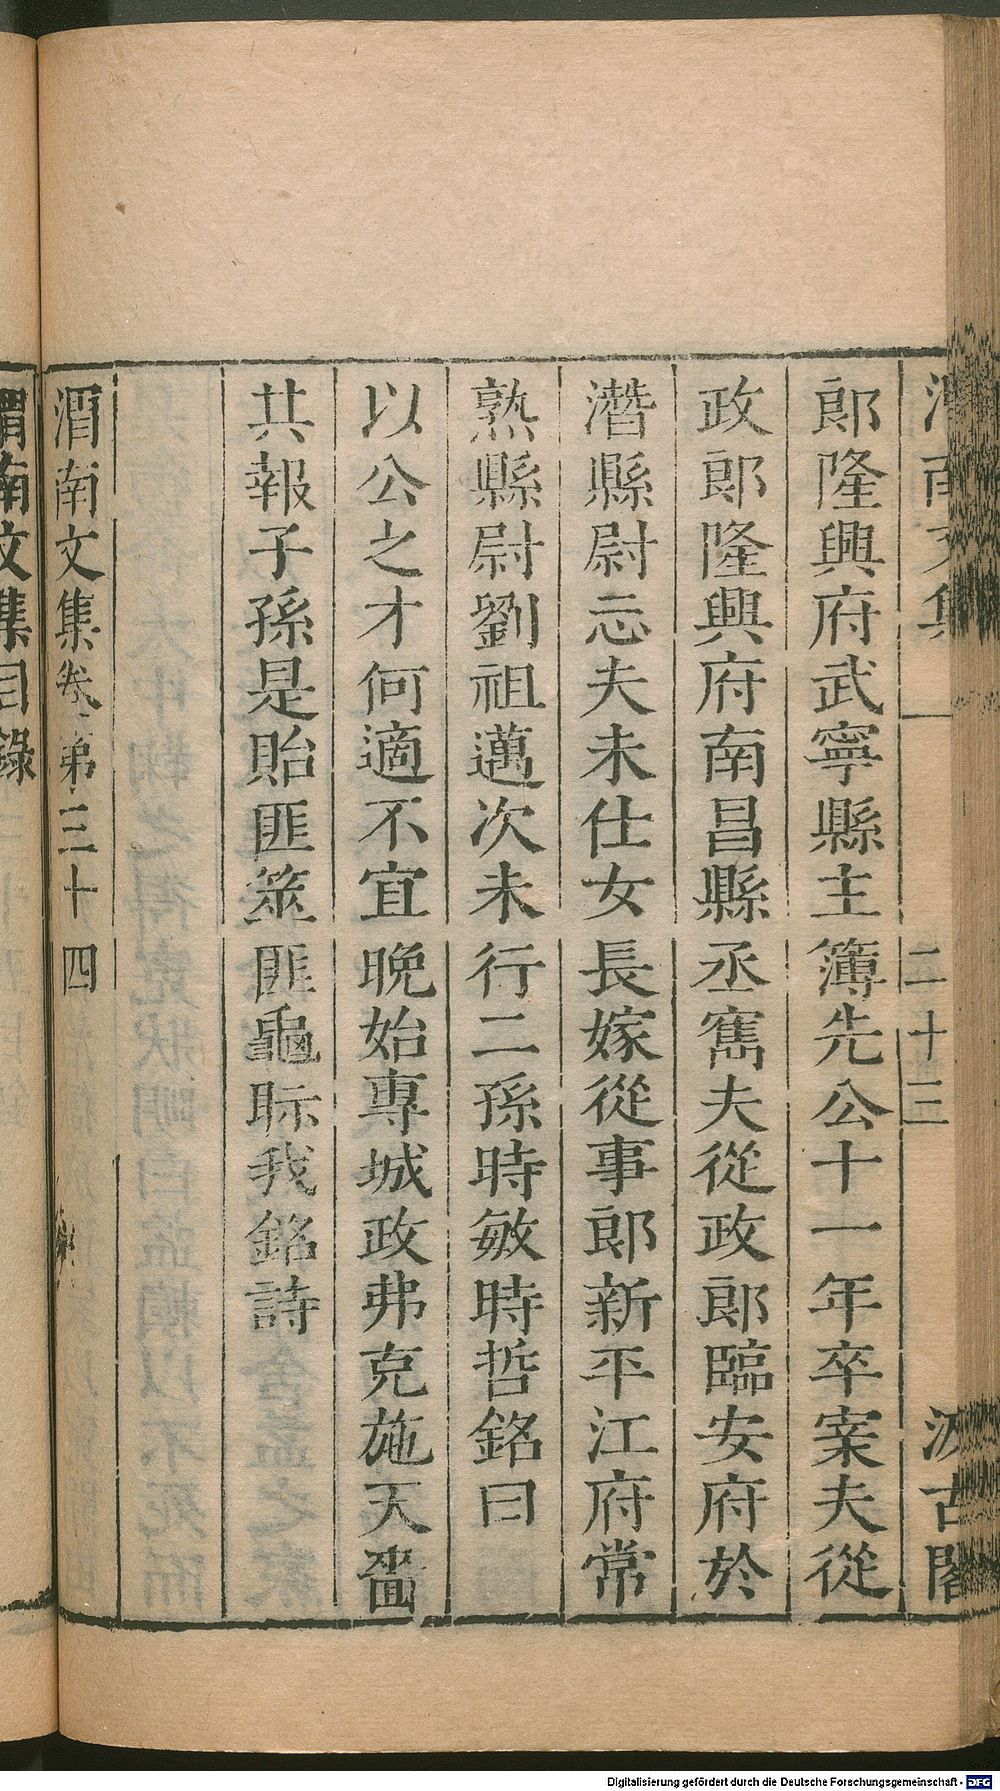 渭南文集 二十三 汲古閣
郎隆興府武寧縣主簿先公十一年卒寀夫從
政郎隆興府南昌縣丞寯夫從政郎臨安府於
潛縣尉忈夫未仕女長嫁從事郎新平江府常
熟縣尉劉祖邁次未行二孫時敏時哲銘曰
以公之才何適不宜晚始專城政弗克施天嗇
其報子孫是貽匪筮匪龜眂我銘詩
渭南文集卷第三十四
渭南文集目錄
Digitalisierung gefördert durch die Deutsche Forschungsgemeinschaft - DFG